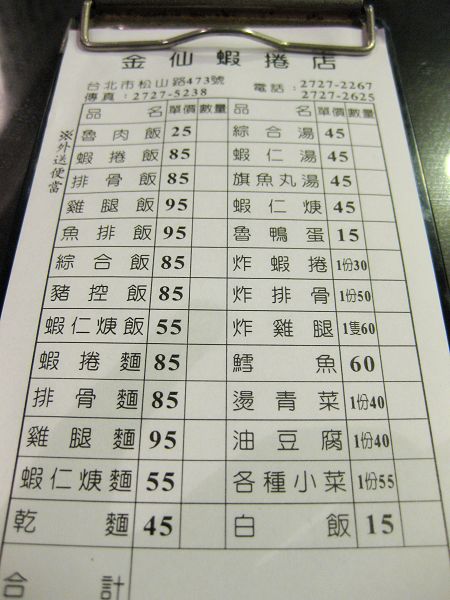 金仙蝦捲店
台北市松山路473號 電話：2727-2267
傳真：2727-5238 2727-2625
※外送便當
品名 單價 數量 品名 單價 數量
魯肉飯 25 綜合湯 45
蝦捲飯 85 蝦仁湯 45
排骨飯 85 旗魚丸湯 45
雞腿飯 95 蝦仁焿 45
魚排飯 95 魯鴨蛋 15
綜合飯 85 炸蝦捲 1份30
豬控飯 85 炸排骨 1份50
蝦仁焿飯 55 炸雞腿 1隻60
蝦捲麵 85 鱈魚 60
排骨麵 85 燙青菜 1份40
雞腿麵 95 油豆腐 1份40
蝦仁焿麵 55 各種小菜 1份55
乾麵 45 白飯 15
合計